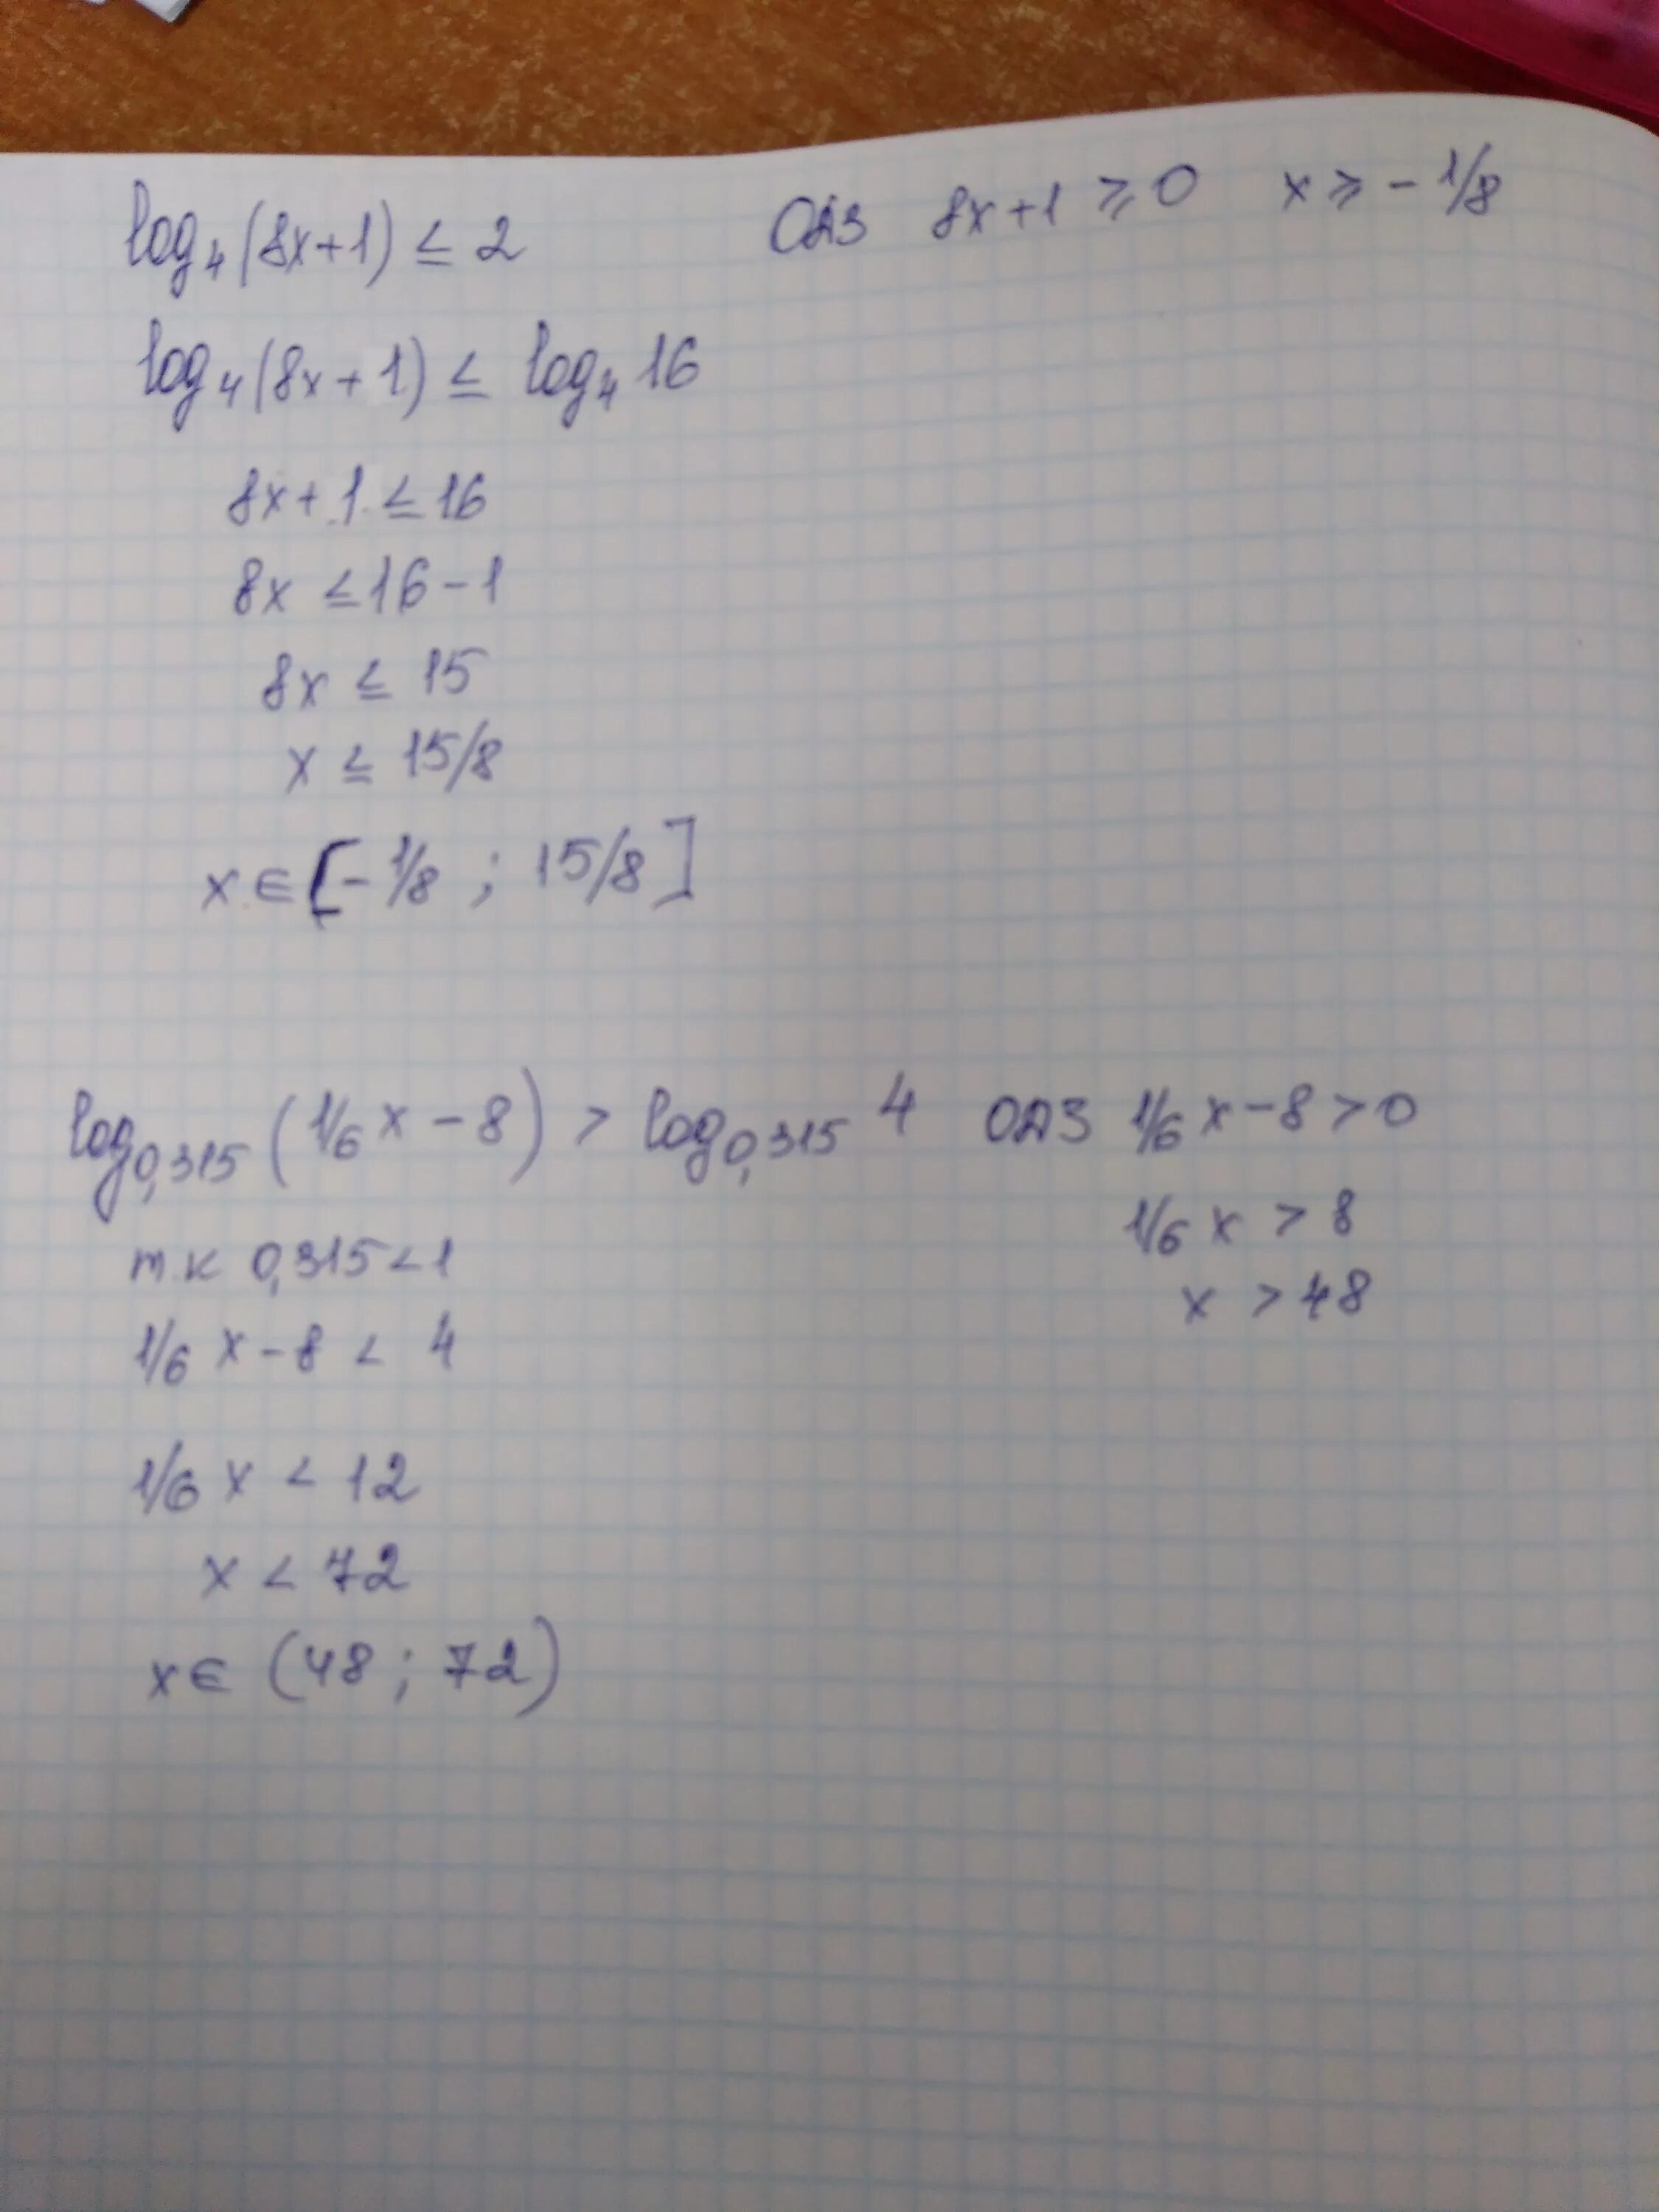 log₄(8x+1) ≤ 2 ОДЗ 8x+1 ⩾ 0 x ⩾ - 1/8
log₄(8x+1) ≤ log₄ 16
8x+1 ≤ 16
8x ≤ 16-1
8x ≤ 15
x ≤ 15/8
x ∈ [- 1/8 ; 15/8]
log₀,₃₁₅ (1/6 x - 8) > log₀,₃₁₅ 4 ОДЗ 1/6 x - 8 > 0
1/6 x > 8
т.к 0,315 < 1
x > 48
1/6 x - 8 < 4
1/6 x < 12
x < 72
x ∈ (48 ; 72)